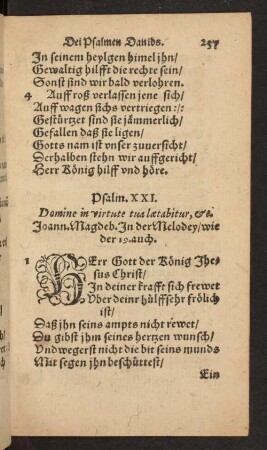 Dei Psalmen Dauids. 257
In seinem heylgen himel jhn/
Gewaltig hilfft die rechte sein/
Sonst sind wir bald verlohren.
4 Auff roß verlassen jene sich/
Auff wagen sichs vertriegen:/:
Gestürtzet sind sie jämmerlich/
Gefallen daß sie ligen/
Gotts nam ist vnser zuuersicht/
Derhalben stehn wir auffgericht/
Herr König hilff vnd höre.
Psalm. XXI.
Domine in virtute tua lætabitur, &c.
Joann. Magdeb. In der Melodey/wie
der 19. auch.
1 HErr Gott der König Jhe-
sus Christ/
In deiner krafft sich frewet
Vber deinr hülff sehr frölich
ist/
Daß jhn seins ampts nicht rewet/
Du gibst jhm seines hertzen wunsch/
Vnd wegerst nicht die bit seins munds
Mit segen jhn beschüttest/
Ein